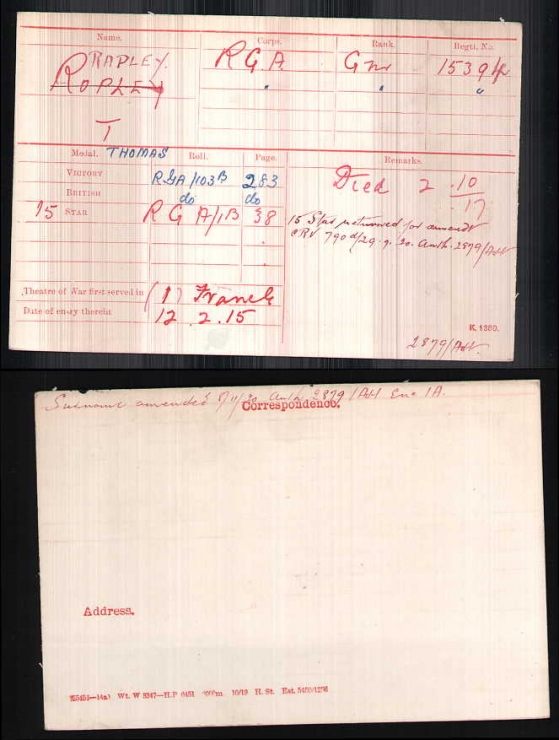 Name. Corps. Rank. Regtl. No.
RAPLEY.
ROPLEY R G A Gnr 15394
" " "
T
THOMAS
Medal. Roll. Page. Remarks.
VICTORY RGA/103B 283 Died 2.10/17
BRITISH do do
15 STAR R G A/1B 38
15 Star returned for amendt
790d/29.9.20. Auth. 2879/Adt
Theatre of War first served in (1) France
Date of entry therein 12.2.15
K. 1380.
2879/Adt.
Surname amended Auth. 2879/Adt Enc 1A.
Correspondence.
Address.
Wt. W 5347—H.P 10/19 H. St.